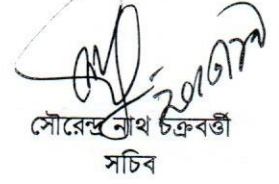 সৌরেন্দ্র নাথ চক্রবর্ত্তী
সচিব